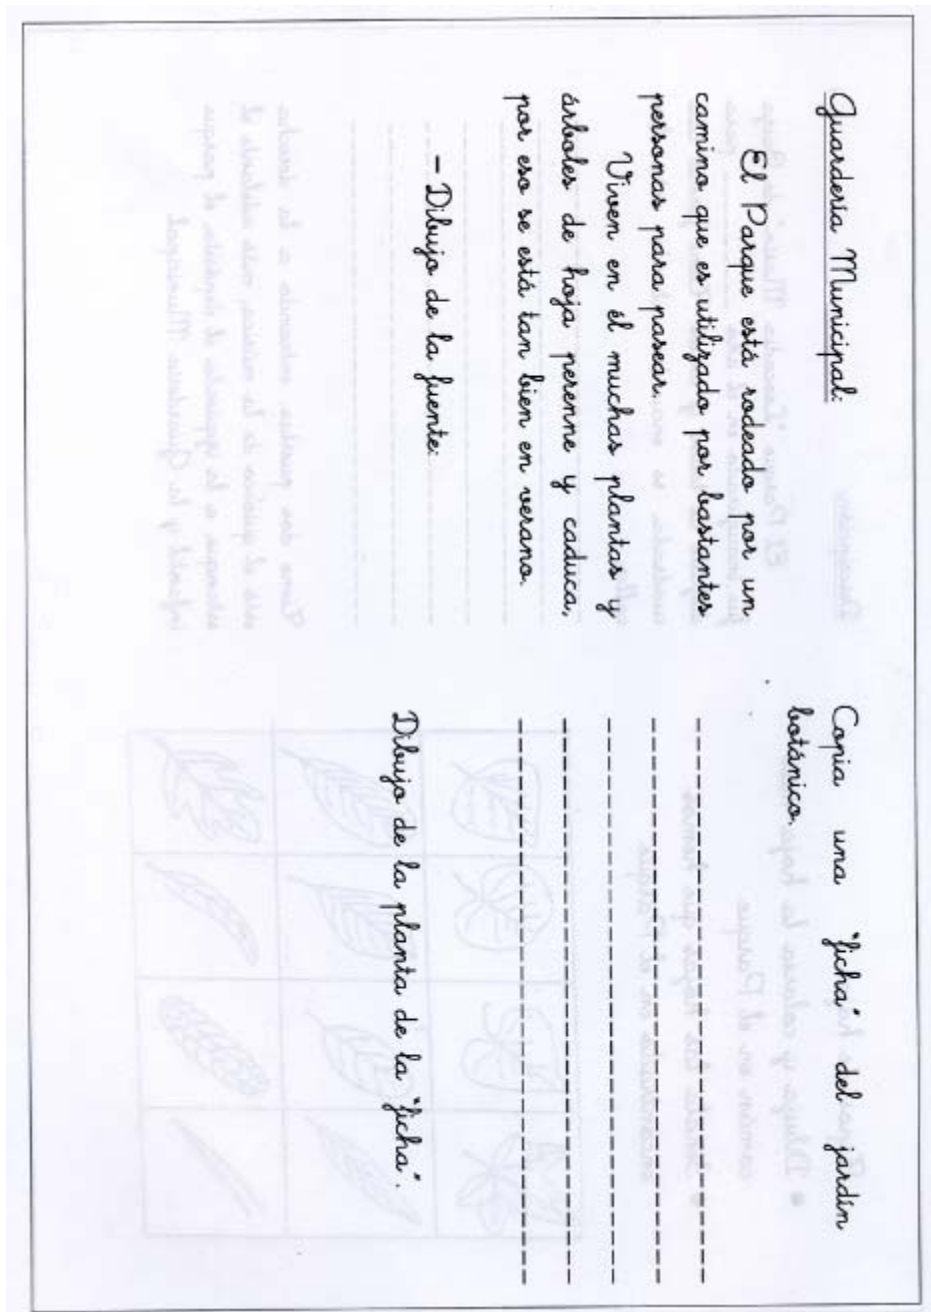 Guardería Municipal:
El Parque está rodeado por un
camino que es utilizado por bastantes
personas para pasear.
Viven en él muchas plantas y
árboles de hoja perenne y caduca,
por eso se está tan bien en verano.
- Dibujo de la fuente:
Copia una "ficha" del jardín
botánico.
Dibujo de la planta de la "ficha".